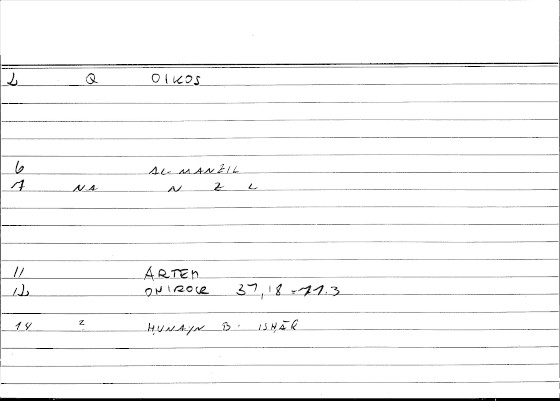 1 Q OIKOS
6 AL-MANZIL
7 NA N Z L
11 ARTEM
12 ONIROCR 37,18 = 71.3
14 2 HUNAYN B. ISHĀK